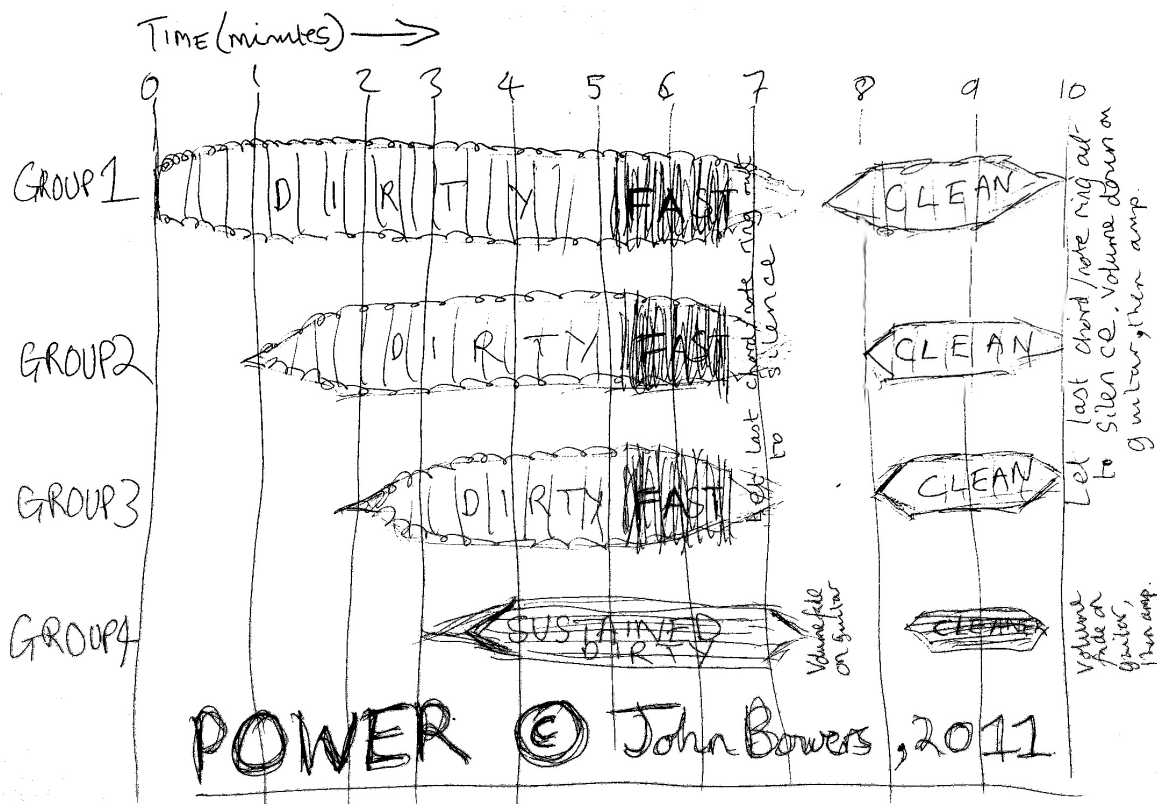 TIME (minutes)
0 1 2 3 4 5 6 7 8 9 10
GROUP1
DIRTY
FAST
CLEAN
GROUP2
DIRTY
FAST
CLEAN
GROUP3
DIRTY
FAST
CLEAN
GROUP4
SUSTAINED
DIRTY
CLEAN
Let last chord/note ring out
to silence
Volume fade
on guitar
Let last chord/note ring out
to silence. Volume down on
guitar, then amp.
Volume
fade on
guitar,
then amp.
POWER © John Bowers, 2011